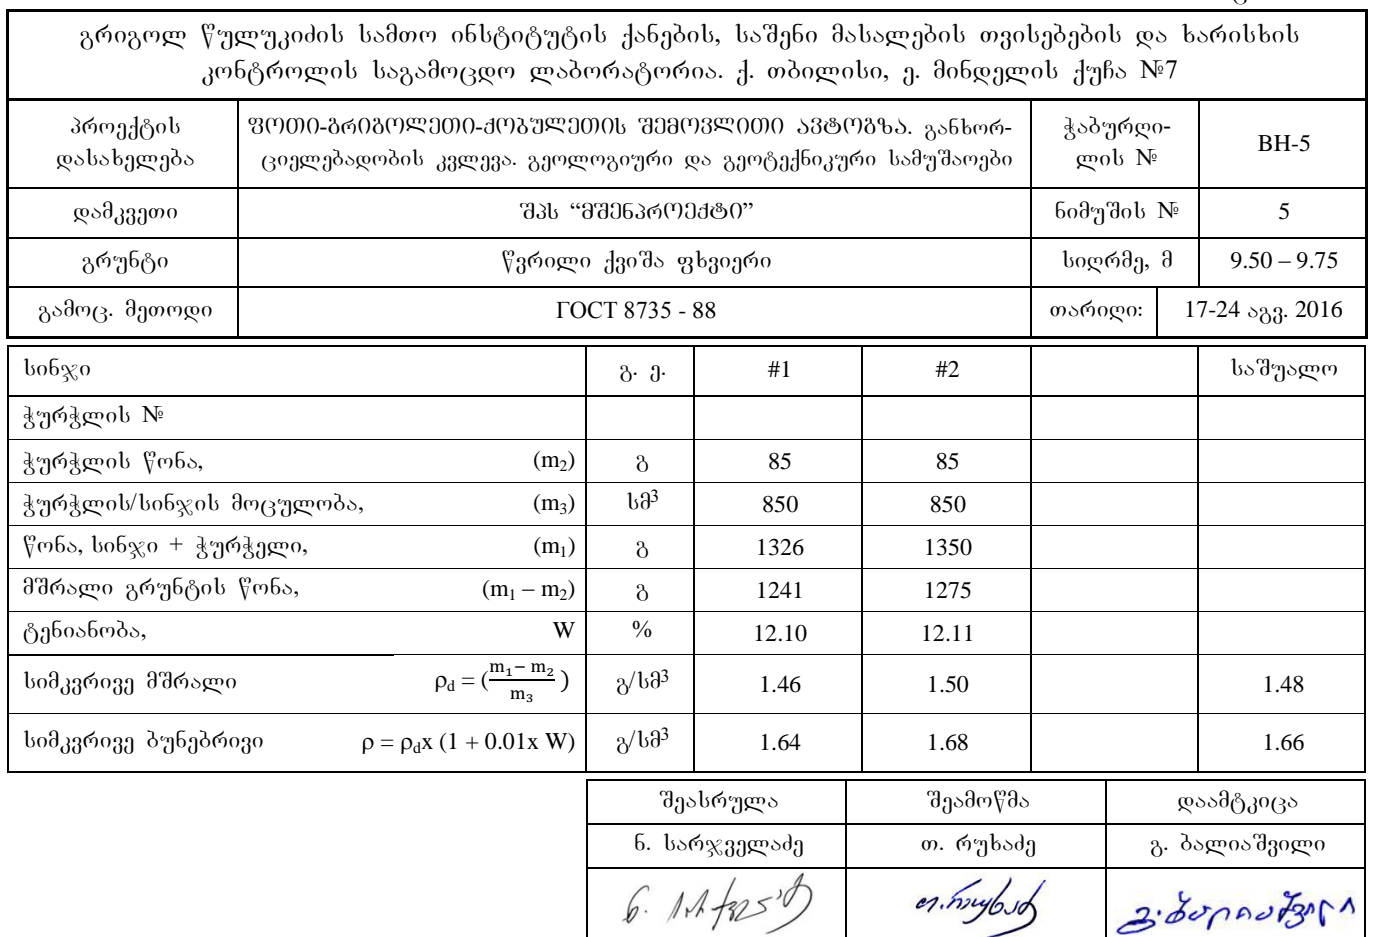 გრიგოლ წულუკიძის სამთო ინსტიტუტის ქანების, საშენი მასალების თვისებების და ხარისხის
კონტროლის საგამოცდო ლაბორატორია. ქ. თბილისი, ე. მინდელის ქუჩა №7
პროექტის
დასახელება
ფოთი-გრიგოლეთი-ქობულეთის შემოვლითი ავტოგზა. განხორ-
ციელებადობის კვლევა. გეოლოგიური და გეოტექნიკური სამუშაოები
ჭაბურღი-
ლის №
BH-5
დამკვეთი
შპს “მშენპროექტი”
ნიმუშის №
5
გრუნტი
წვრილი ქვიშა ფხვიერი
სიღრმე, მ
9.50 – 9.75
გამოც. მეთოდი
ГОСТ 8735 - 88
თარიღი:
17-24 აგვ. 2016
სინჯი გ. ე. #1 #2 საშუალო
ჭურჭლის №
ჭურჭლის წონა, (m₂) გ 85 85
ჭურჭლის/სინჯის მოცულობა, (m₃) სმ³ 850 850
წონა, სინჯი + ჭურჭელი, (m₁) გ 1326 1350
მშრალი გრუნტის წონა, (m₁ – m₂) გ 1241 1275
ტენიანობა, W % 12.10 12.11
სიმკვრივე მშრალი ρd = (m₁− m₂/m₃) გ/სმ³ 1.46 1.50 1.48
სიმკვრივე ბუნებრივი ρ = ρdx (1 + 0.01x W) გ/სმ³ 1.64 1.68 1.66
შეასრულა შეამოწმა დაამტკიცა
ნ. სარჯველაძე თ. რუხაძე გ. ბალიაშვილი